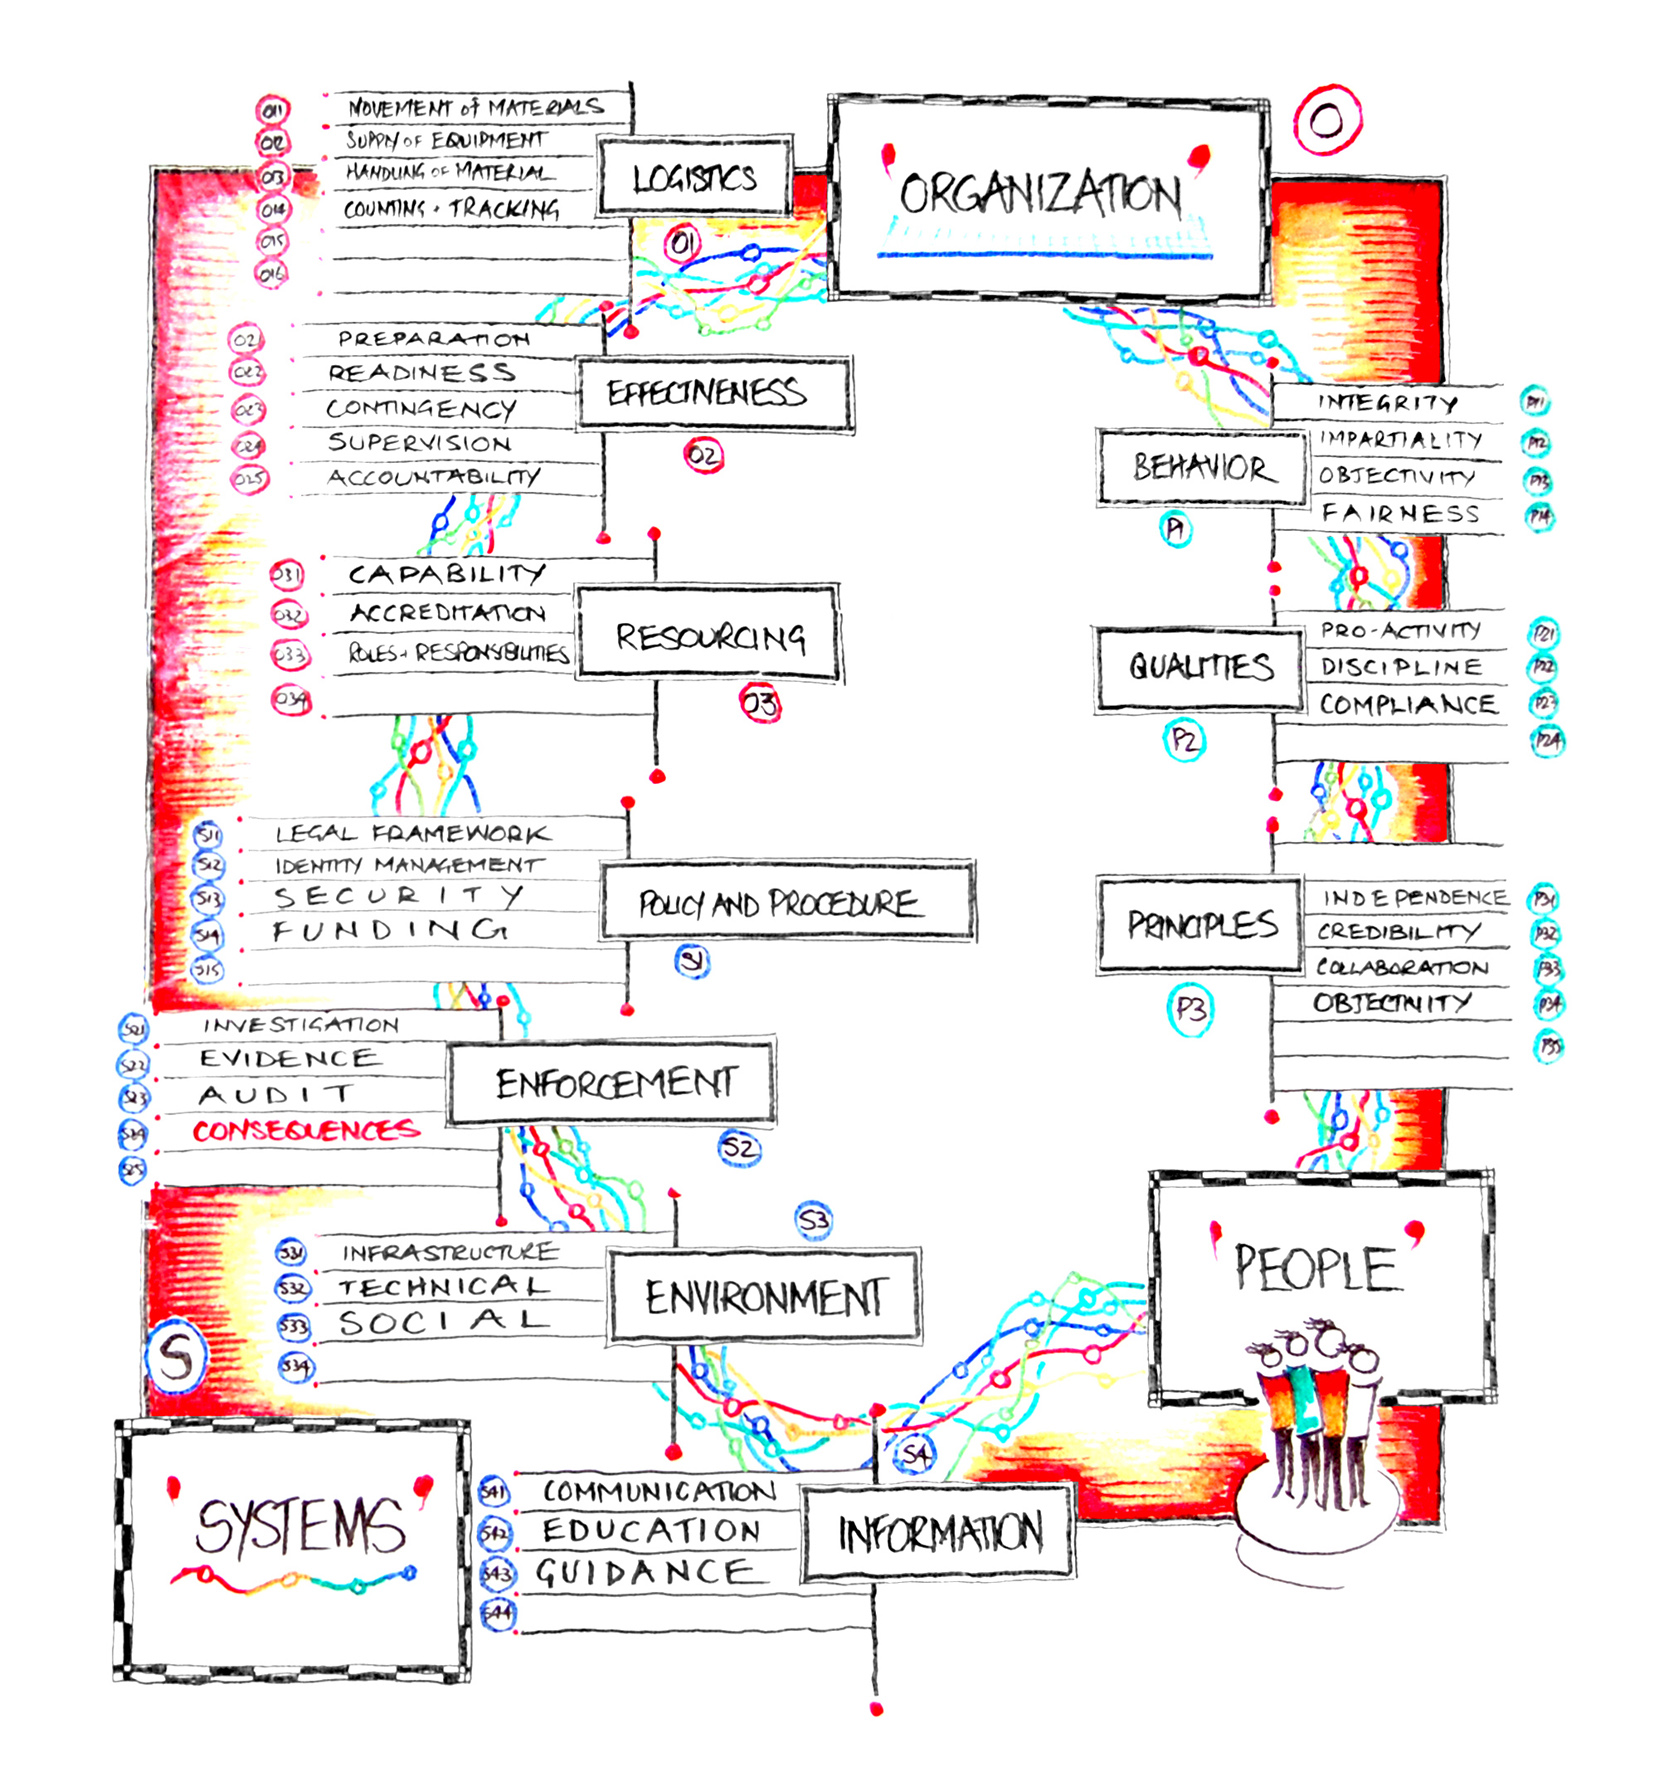 O
ORGANIZATION
O11 MOVEMENT of MATERIALS
O12 SUPPLY OF EQUIPMENT
O13 HANDLING OF MATERIAL
O14 COUNTING + TRACKING
O15
O16
LOGISTICS
O1
O21 PREPARATION
O22 READINESS
O23 CONTINGENCY
O24 SUPERVISION
O25 ACCOUNTABILITY
EFFECTIVENESS
O2
O31 CAPABILITY
O32 ACCREDITATION
O33 ROLES + RESPONSIBILITIES
O34
RESOURCING
O3
S11 LEGAL FRAMEWORK
S12 IDENTITY MANAGEMENT
S13 SECURITY
S14 FUNDING
S15
POLICY AND PROCEDURE
S1
S21 INVESTIGATION
S22 EVIDENCE
S23 AUDIT
S24 CONSEQUENCES
S25
ENFORCEMENT
S2
S3
S31 INFRASTRUCTURE
S32 TECHNICAL
S33 SOCIAL
S34
ENVIRONMENT
S
SYSTEMS
S4
S41 COMMUNICATION
S42 EDUCATION
S43 GUIDANCE
S44
INFORMATION
INTEGRITY P11
IMPARTIALITY P12
OBJECTIVITY P13
FAIRNESS P14
BEHAVIOR
P1
PRO-ACTIVITY P21
DISCIPLINE P22
COMPLIANCE P23
P24
QUALITIES
P2
INDEPENDENCE P31
CREDIBILITY P32
COLLABORATION P33
OBJECTIVITY P34
P35
PRINCIPLES
P3
PEOPLE